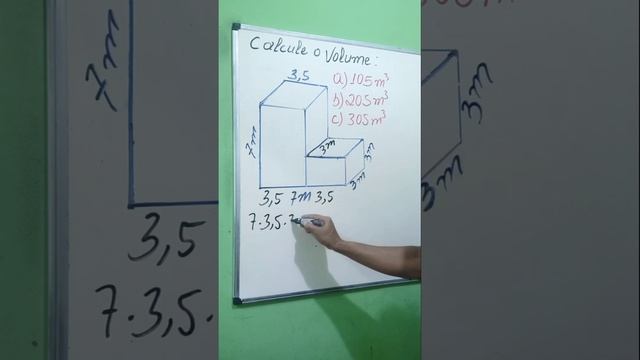 Calcule o Volume:
3,5
a) 105m³
b) 205m³
c) 305m³
7m
3m
3m
3m
3,5 7m 3,5
7·3,5·
7m
3,5
7·3,5·
3m
3m